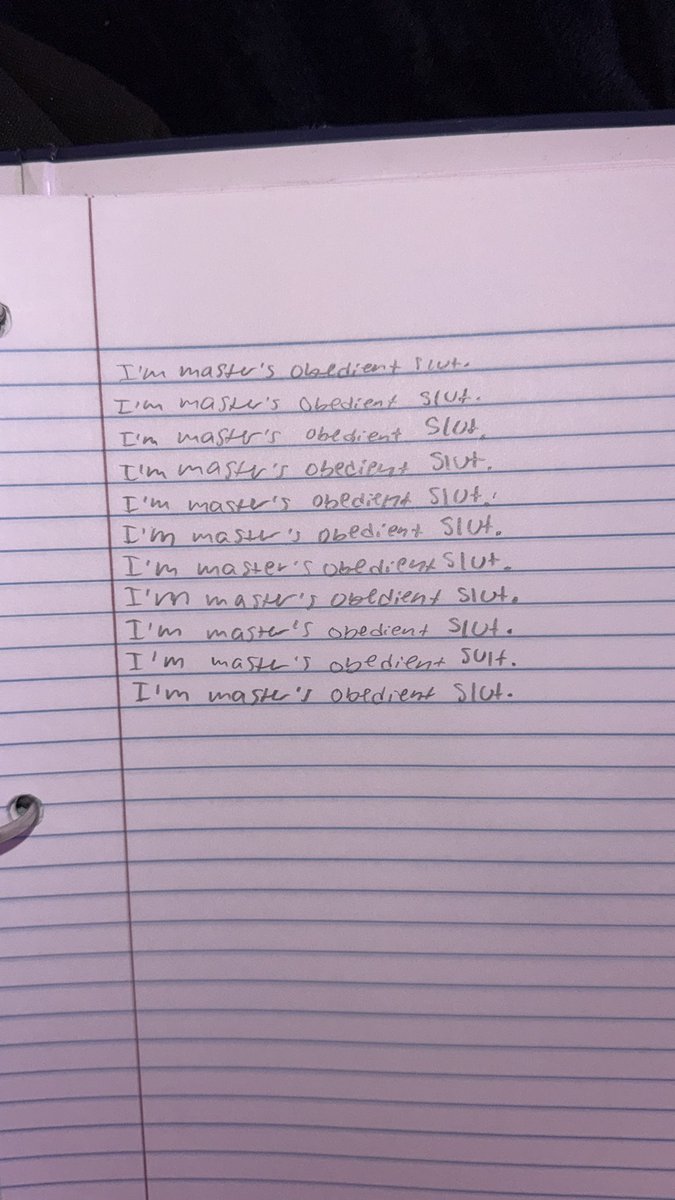 I'm master's obedient slut.
I'm master's obedient slut.
I'm master's obedient slut.
I'm master's obedient slut.
I'm master's obedient slut.
I'm master's obedient slut.
I'm master's obedient slut.
I'm master's obedient slut.
I'm master's obedient slut.
I'm master's obedient sult.
I'm master's obedient slut.